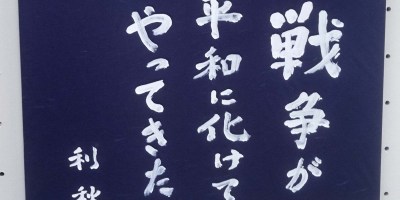 戦争が
平和に化けて
やってきた
利秋